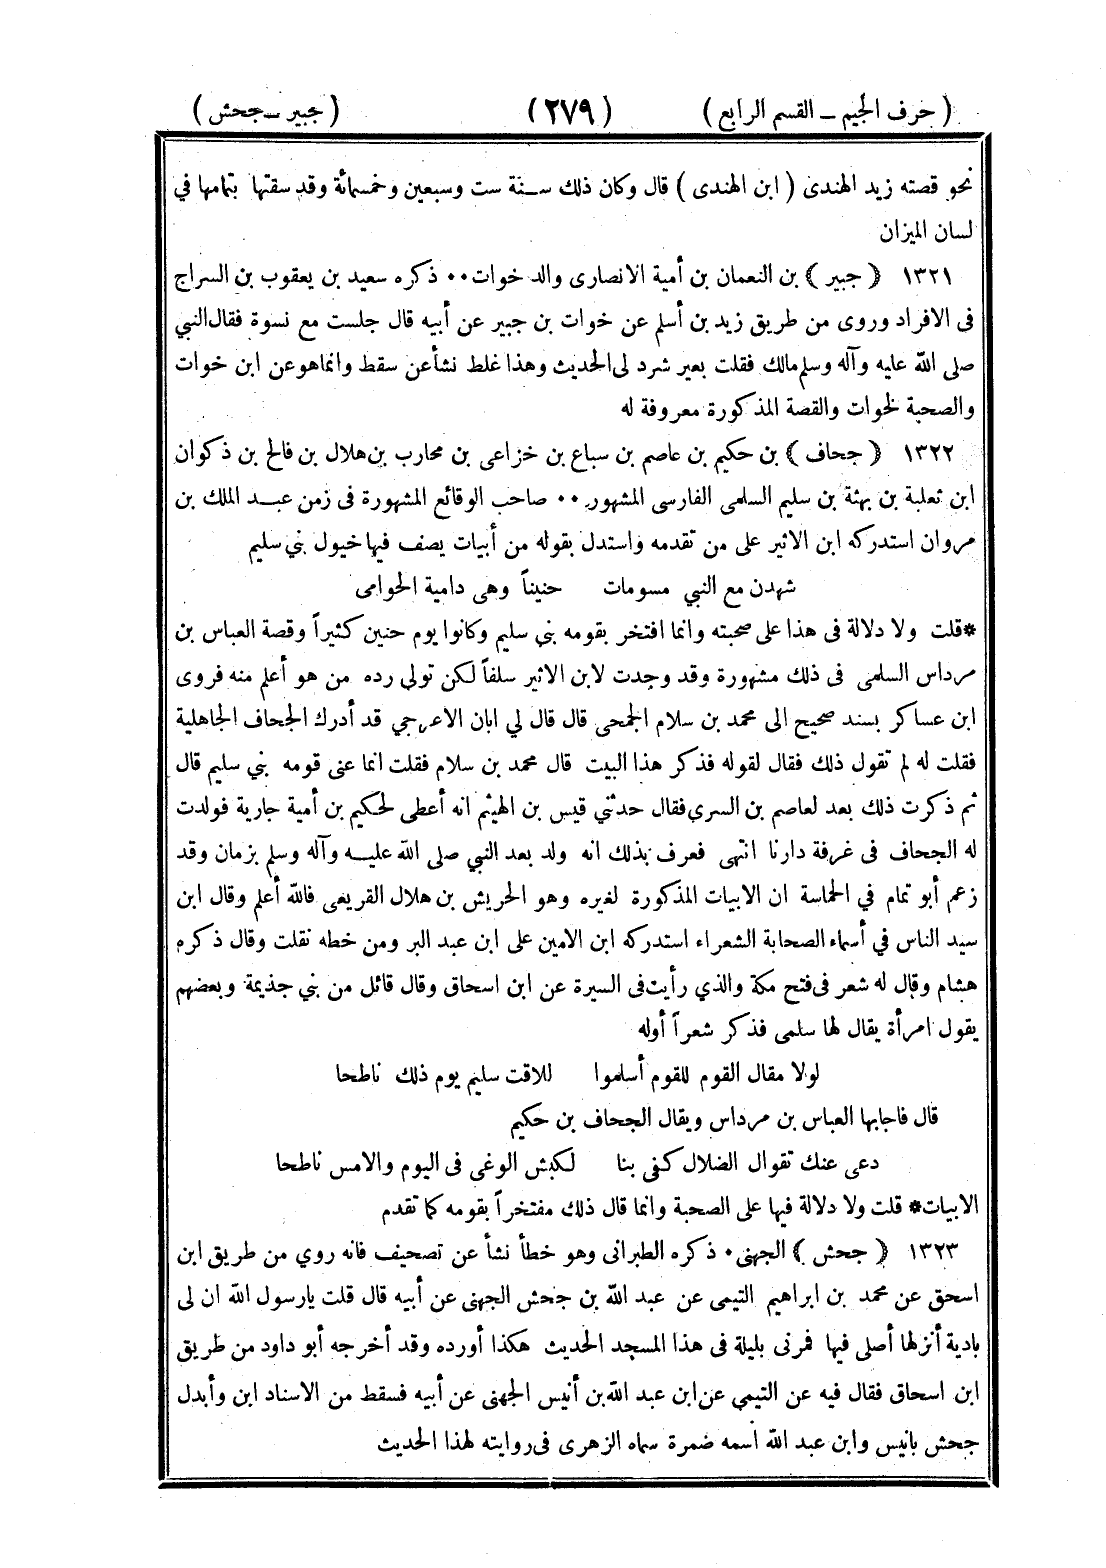 ( حرف الجيم ــ القسم الرابع )
( ٢٧٩ )
( جبير ــ جحش )
نحو قصته زيد الهندى ( ابن الهندى ) قال وكان ذلك سـنة ست وسبعين وخمسمائة وقد سقتها بتمامها في
لسان الميزان
١٣٢١ ﴿ جبير ﴾ بن النعمان بن أمية الانصارى والد خوات٠٠ ذكره سعيد بن يعقوب بن السراج
فى الافراد وروى من طريق زيد بن أسلم عن خوات بن جبير عن أبيه قال جلست مع نسوة فقال النبي
صلى الله عليه وآله وسلم مالك فقلت بعير شرد لى الحديث وهذا غلط نشأ عن سقط وانماهو عن ابن خوات
والصحبة لخوات والقصة المذكورة معروفة له
١٣٢٢ ﴿ جحاف ﴾ بن حكيم بن عاصم بن سباع بن خزاعى بن محارب بن هلال بن فالح بن ذكوان
ابن ثعلبة بن بهثة بن سليم السلمى الفارسى المشهور ٠٠ صاحب الوقائع المشهورة فى زمن عبـد الملك بن
مروان استدركه ابن الاثير على من تقدمه واستدل بقوله من أبيات يصف فيها خيول بني سليم
شهدن مع النبي مسومات حنيناً وهى دامية الحوامى
*قلت ولا دلالة فى هذا على صحبته وانما افتخر بقومه بني سليم وكانوا يوم حنين كثيراً وقصة العباس بن
مرداس السلمى فى ذلك مشهورة وقد وجدت لابن الاثير سلفاً لكن تولي رده من هو أعلم منه فروى
ابن عساكر بسند صحيح الى محمد بن سلام الجمحى قال قال لي ابان الاعرجي قد أدرك الجحاف الجاهلية
فقلت له لم تقول ذلك فقال لقوله فذكر هذا البيت قال محمد بن سلام فقلت انما عنى قومه بني سليم قال
ثم ذكرت ذلك بعد لعاصم بن السري فقال حدثني قيس بن الهيثم انه أعطى لحكيم بن أمية جارية فولدت
له الجحاف فى غرفة دارنا انتهى فعرف بذلك انه ولد بعد النبي صلى الله عليـه وآله وسلم بزمان وقد
زعم أبو تمام في الحماسة ان الابيات المذكورة لغيره وهو الحريش بن هلال القريعى فالله أعلم وقال ابن
سيد الناس في أسماء الصحابة الشعراء استدركه ابن الامين على ابن عبد البر ومن خطه نقلت وقال ذكرم
هشام وقال له شعر فى فتح مكة والذي رأيت فى السيرة عن ابن اسحاق وقال قائل من بني جذيمة وبعضهم
يقول امرأة يقال لها سلمى فذكر شعراً أوله
لولا مقال القوم للقوم أسلموا للاقت سليم يوم ذلك ناطحا
قال فاجابها العباس بن مرداس ويقال الجحاف بن حكيم
دعى عنك تقوال الضلال كفى بنا لكبش الوغى فى اليوم والامس ناطحا
الابيات* قلت ولا دلالة فيها على الصحبة وانما قال ذلك مفتخراً بقومه كما تقدم
١٣٢٣ ﴿ جحش ﴾ الجهنى٠ ذكره الطبرانى وهو خطأ نشأ عن تصحيف فانه روي من طريق ابن
اسحق عن محمد بن ابراهيم التيمى عن عبد الله بن جحش الجهنى عن أبيه قال قلت يارسول الله ان لى
بادية أنزلها أصلى فيها فمرنى بليلة فى هذا المسجد الحديث هكذا أورده وقد أخرجه أبو داود من طريق
ابن اسحاق فقال فيه عن التيمي عن ابن عبد الله بن أنيس الجهنى عن أبيه فسقط من الاسناد ابن وأبدل
جحش بانيس وابن عبد الله اسمه ضمرة سماه الزهرى فى روايته لهذا الحديث